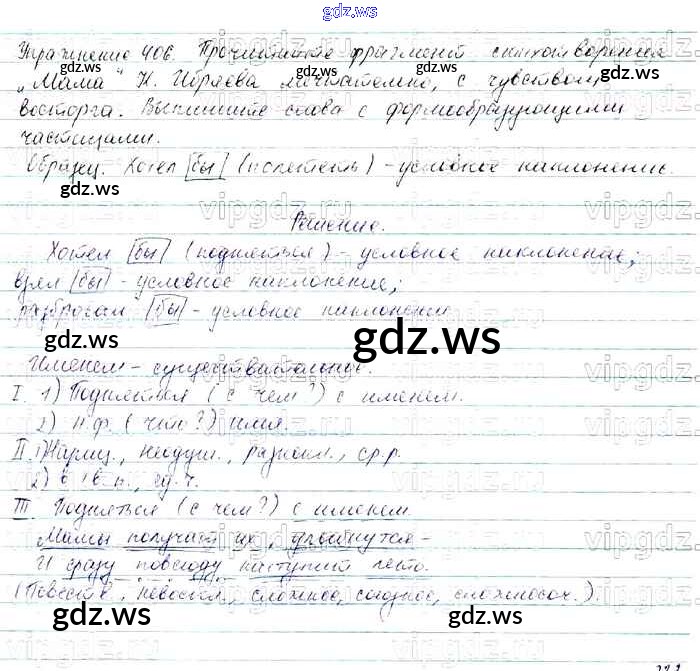 gdz.ws
Упражнение 406. Прочитайте фрагмент стихотворения
„Мама“ К. Ибряева мечтательно, с чувством
восторга. Выпишите слова с формообразующими
частицами.
Образец. Хотел [бы] (полететь) – условное наклонение.
Решение.
Хотел [бы] (подняться) – условное наклонение;
взял [бы] – условное наклонение;
разбросал [бы] – условное наклонение.
Именем – существительное.
I. 1) Подняться (с чем?) с именем.
2) н.ф. (что?) имя.
II. 1) Нариц., неодуш., разноскл., ср.р.
2) в Тв.п., ед.ч.
III. Подняться (с чем?) с именем.
Мамы получат их, улыбнутся –
И сразу повсюду наступит лето.
(Повеств., невоскл., сложное, союзное, сложносоч.).
gdz.ws
gdz.ws
gdz.ws
gdz.ws
gdz.ws
gdz.ws
gdz.ws
gdz.ws
gdz.ws